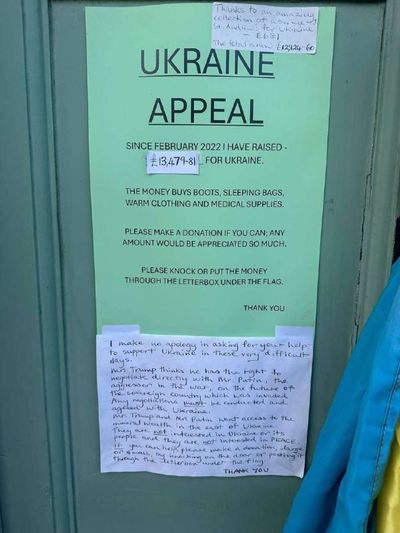 Thanks to an amazing
collection at
St. Andrew's for Ukraine
- £681
The total is now £12,424-60
UKRAINE
APPEAL
SINCE FEBRUARY 2022 I HAVE RAISED -
£13,479-81 FOR UKRAINE.
THE MONEY BUYS BOOTS, SLEEPING BAGS,
WARM CLOTHING AND MEDICAL SUPPLIES.
PLEASE MAKE A DONATION IF YOU CAN; ANY
AMOUNT WOULD BE APPRECIATED SO MUCH.
PLEASE KNOCK OR PUT THE MONEY
THROUGH THE LETTERBOX UNDER THE FLAG.
THANK YOU
I make no apology in asking for your help
to support Ukraine in these very difficult
days.
Trump thinks he has the right to
negotiate directly with Mr. Putin, the
aggressor in the war, on the future of
the sovereign country which was invaded.
Any negotiations must be conducted and
agreed with Ukraine.
Mr. Trump and Mr Putin want access to the
mineral wealth in the east of Ukraine.
They are not interested in Ukraine or its
people and they are not interested in PEACE.
If you can help please make a donation, large
or small, by knocking on the door or posting it
through the letterbox under the flag.
THANK YOU